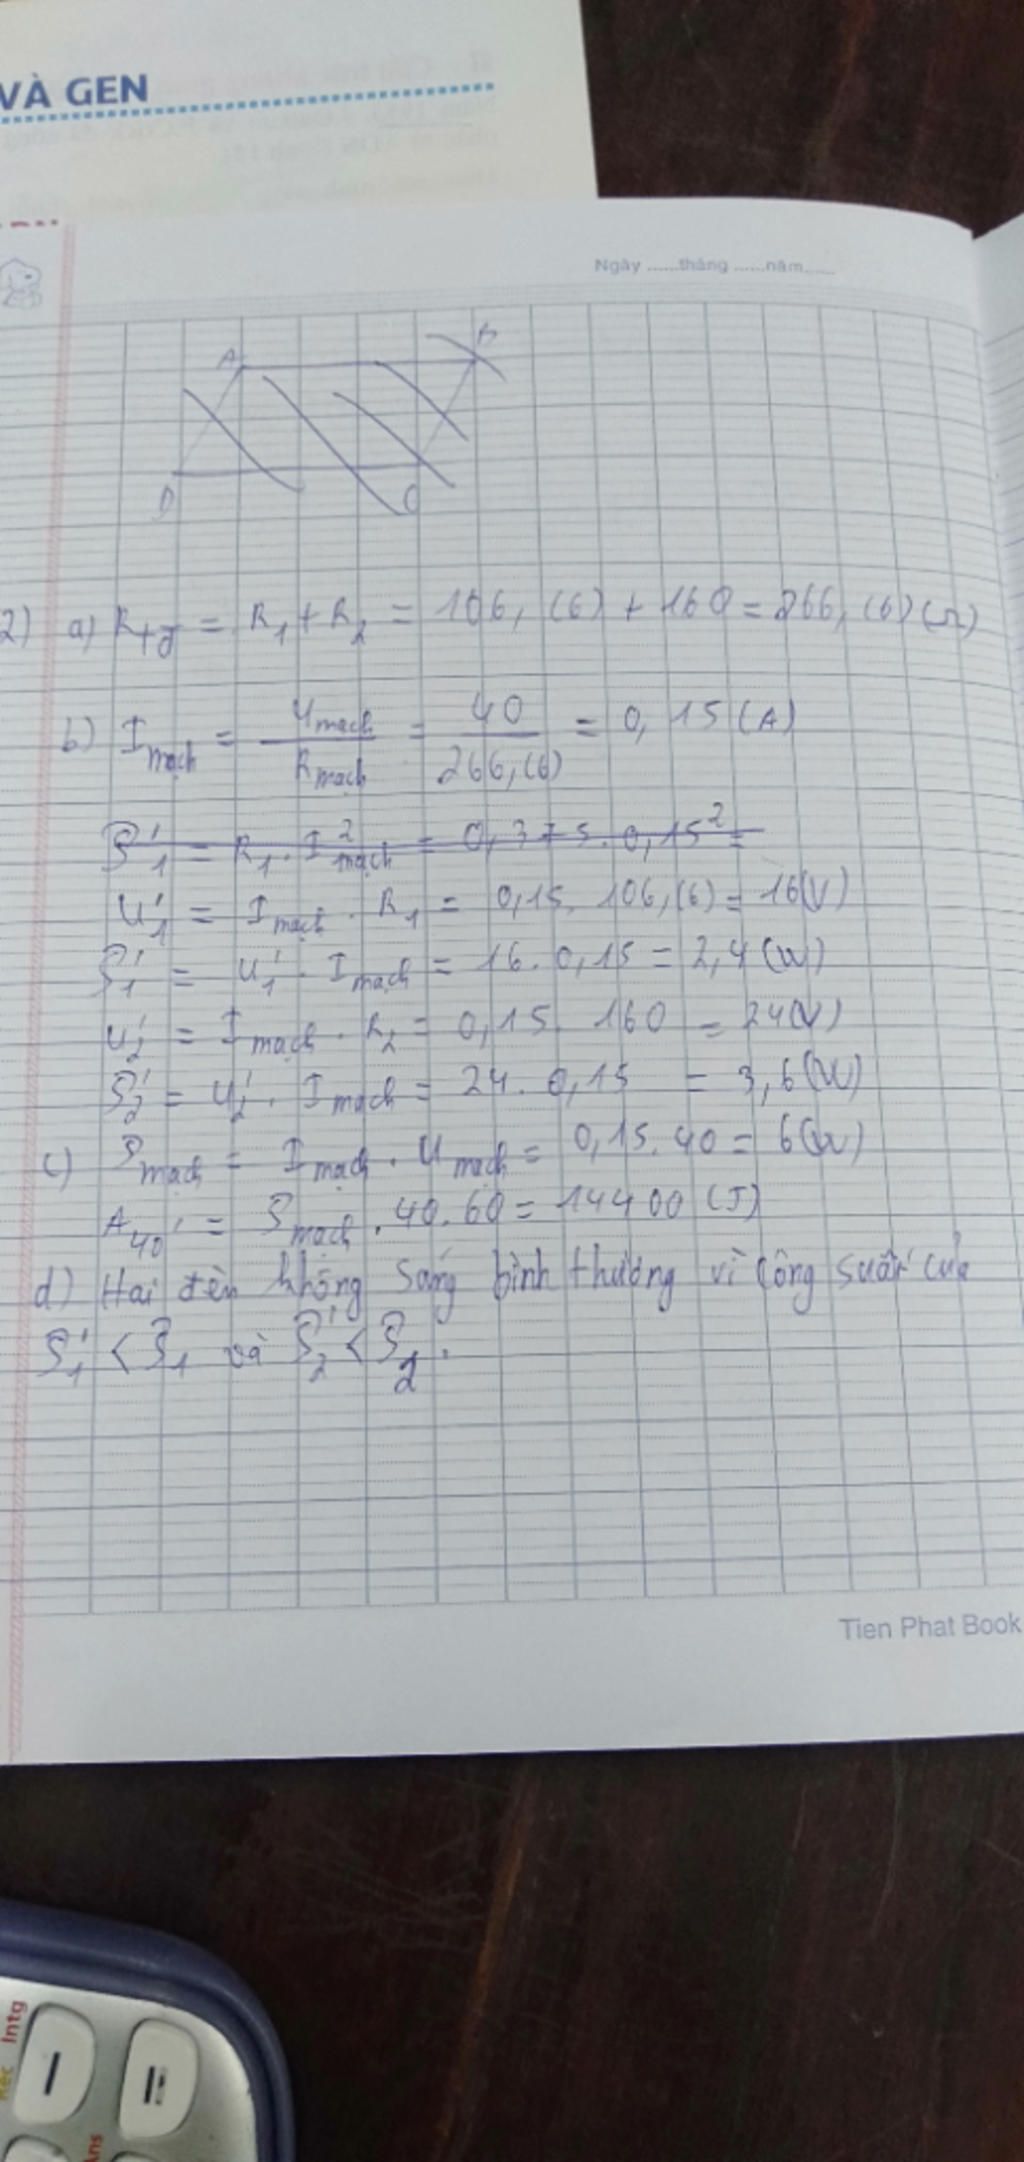 VÀ GEN
Ngày ......tháng ......năm......
A B
D C
2) a) R_tđ = R_1 + R_2 = 106,(6) + 160 = 266,(6) (Ω)
b) I_mạch = U_mạch / R_mạch = 40 / 266,(6) = 0,15 (A)
P'_1 = R_1 . I²_mạch = 0,375 . 0,15² =
U'_1 = I_mạch . R_1 = 0,15 . 106,(6) = 16(V)
P'_1 = U'_1 . I_mạch = 16 . 0,15 = 2,4 (W)
U'_2 = I_mạch . R_2 = 0,15 . 160 = 24(V)
P'_2 = U'_2 . I_mạch = 24 . 0,15 = 3,6(W)
c) P_mạch = I_mạch . U_mạch = 0,15 . 40 = 6(W)
A_40' = P_mạch . 40 . 60 = 14400 (J)
d) Hai đèn không sáng bình thường vì công suất của
P'_1 < P_1 và P'_2 < P_2 .
Tien Phat Book
Intg
Rec
Ans